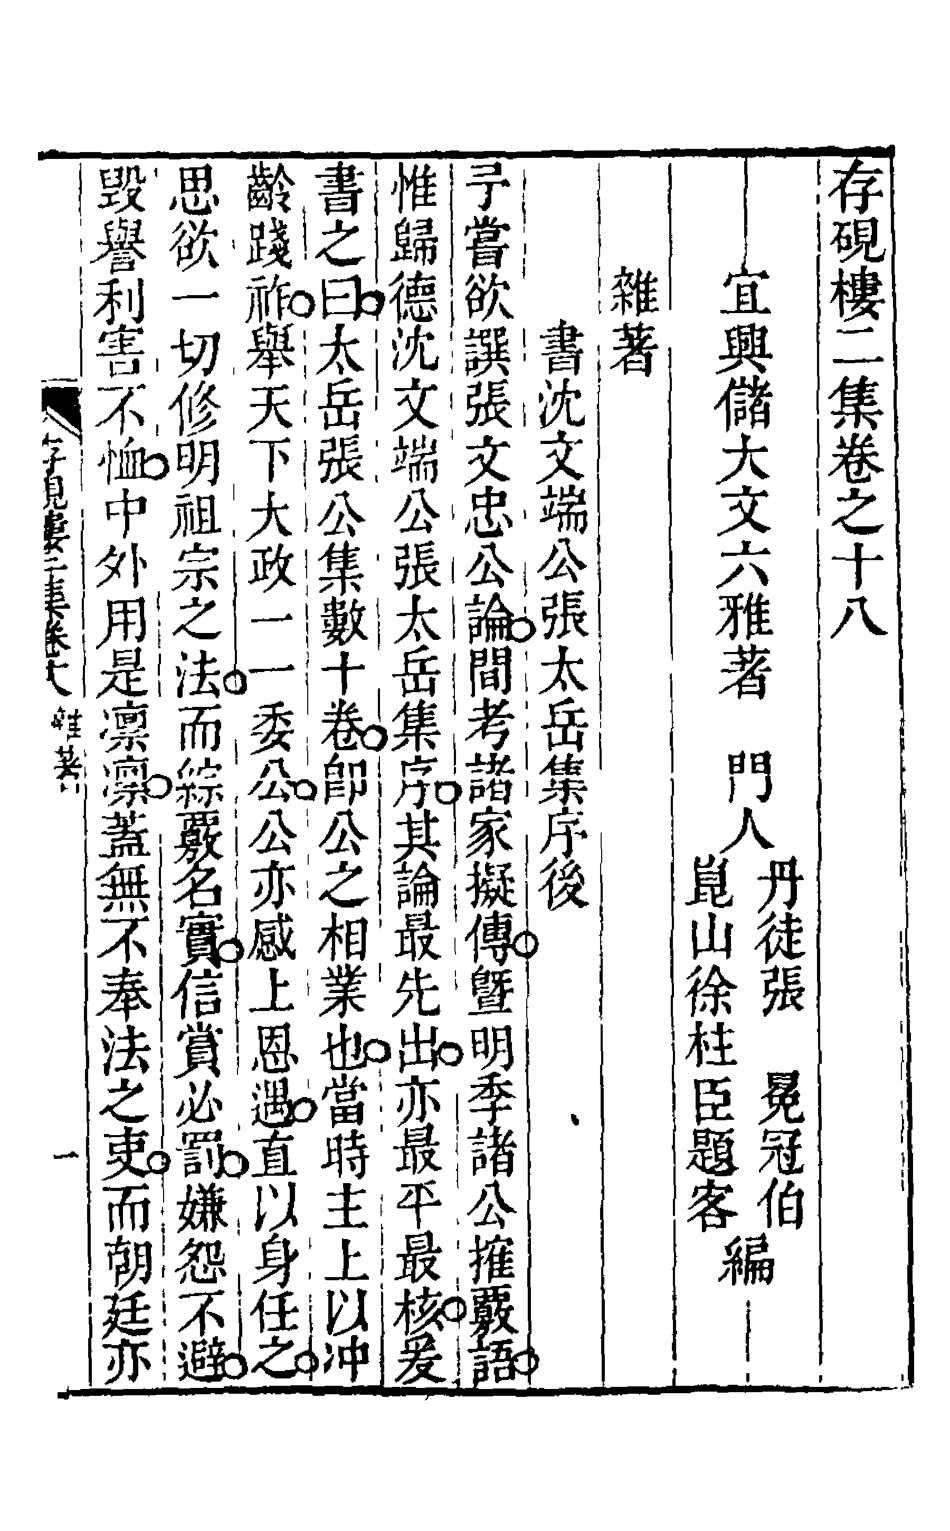 存硯樓二集卷之十八
宜興儲大文六雅著　門人
丹徒張　冕冠伯
崑山徐柱臣題客
編
雜著
書沈文端公張太岳集序後
予嘗欲譔張文忠公論○間考諸家擬傳○暨明季諸公搉覈語○
惟歸德沈文端公張太岳集序○其論最先出○亦最平最核○爰
書之曰○太岳張公集數十卷○卽公之相業也○當時主上以冲
齡踐祚○舉天下大政一一委公○公亦感上恩遇○直以身任之○
思欲一切修明祖宗之法○而綜覈名實○信賞必罰○嫌怨不避○
毀譽利害不恤○中外用是凛凛○蓋無不奉法之吏○而朝廷亦
存硯樓二集卷十八　雜著　一